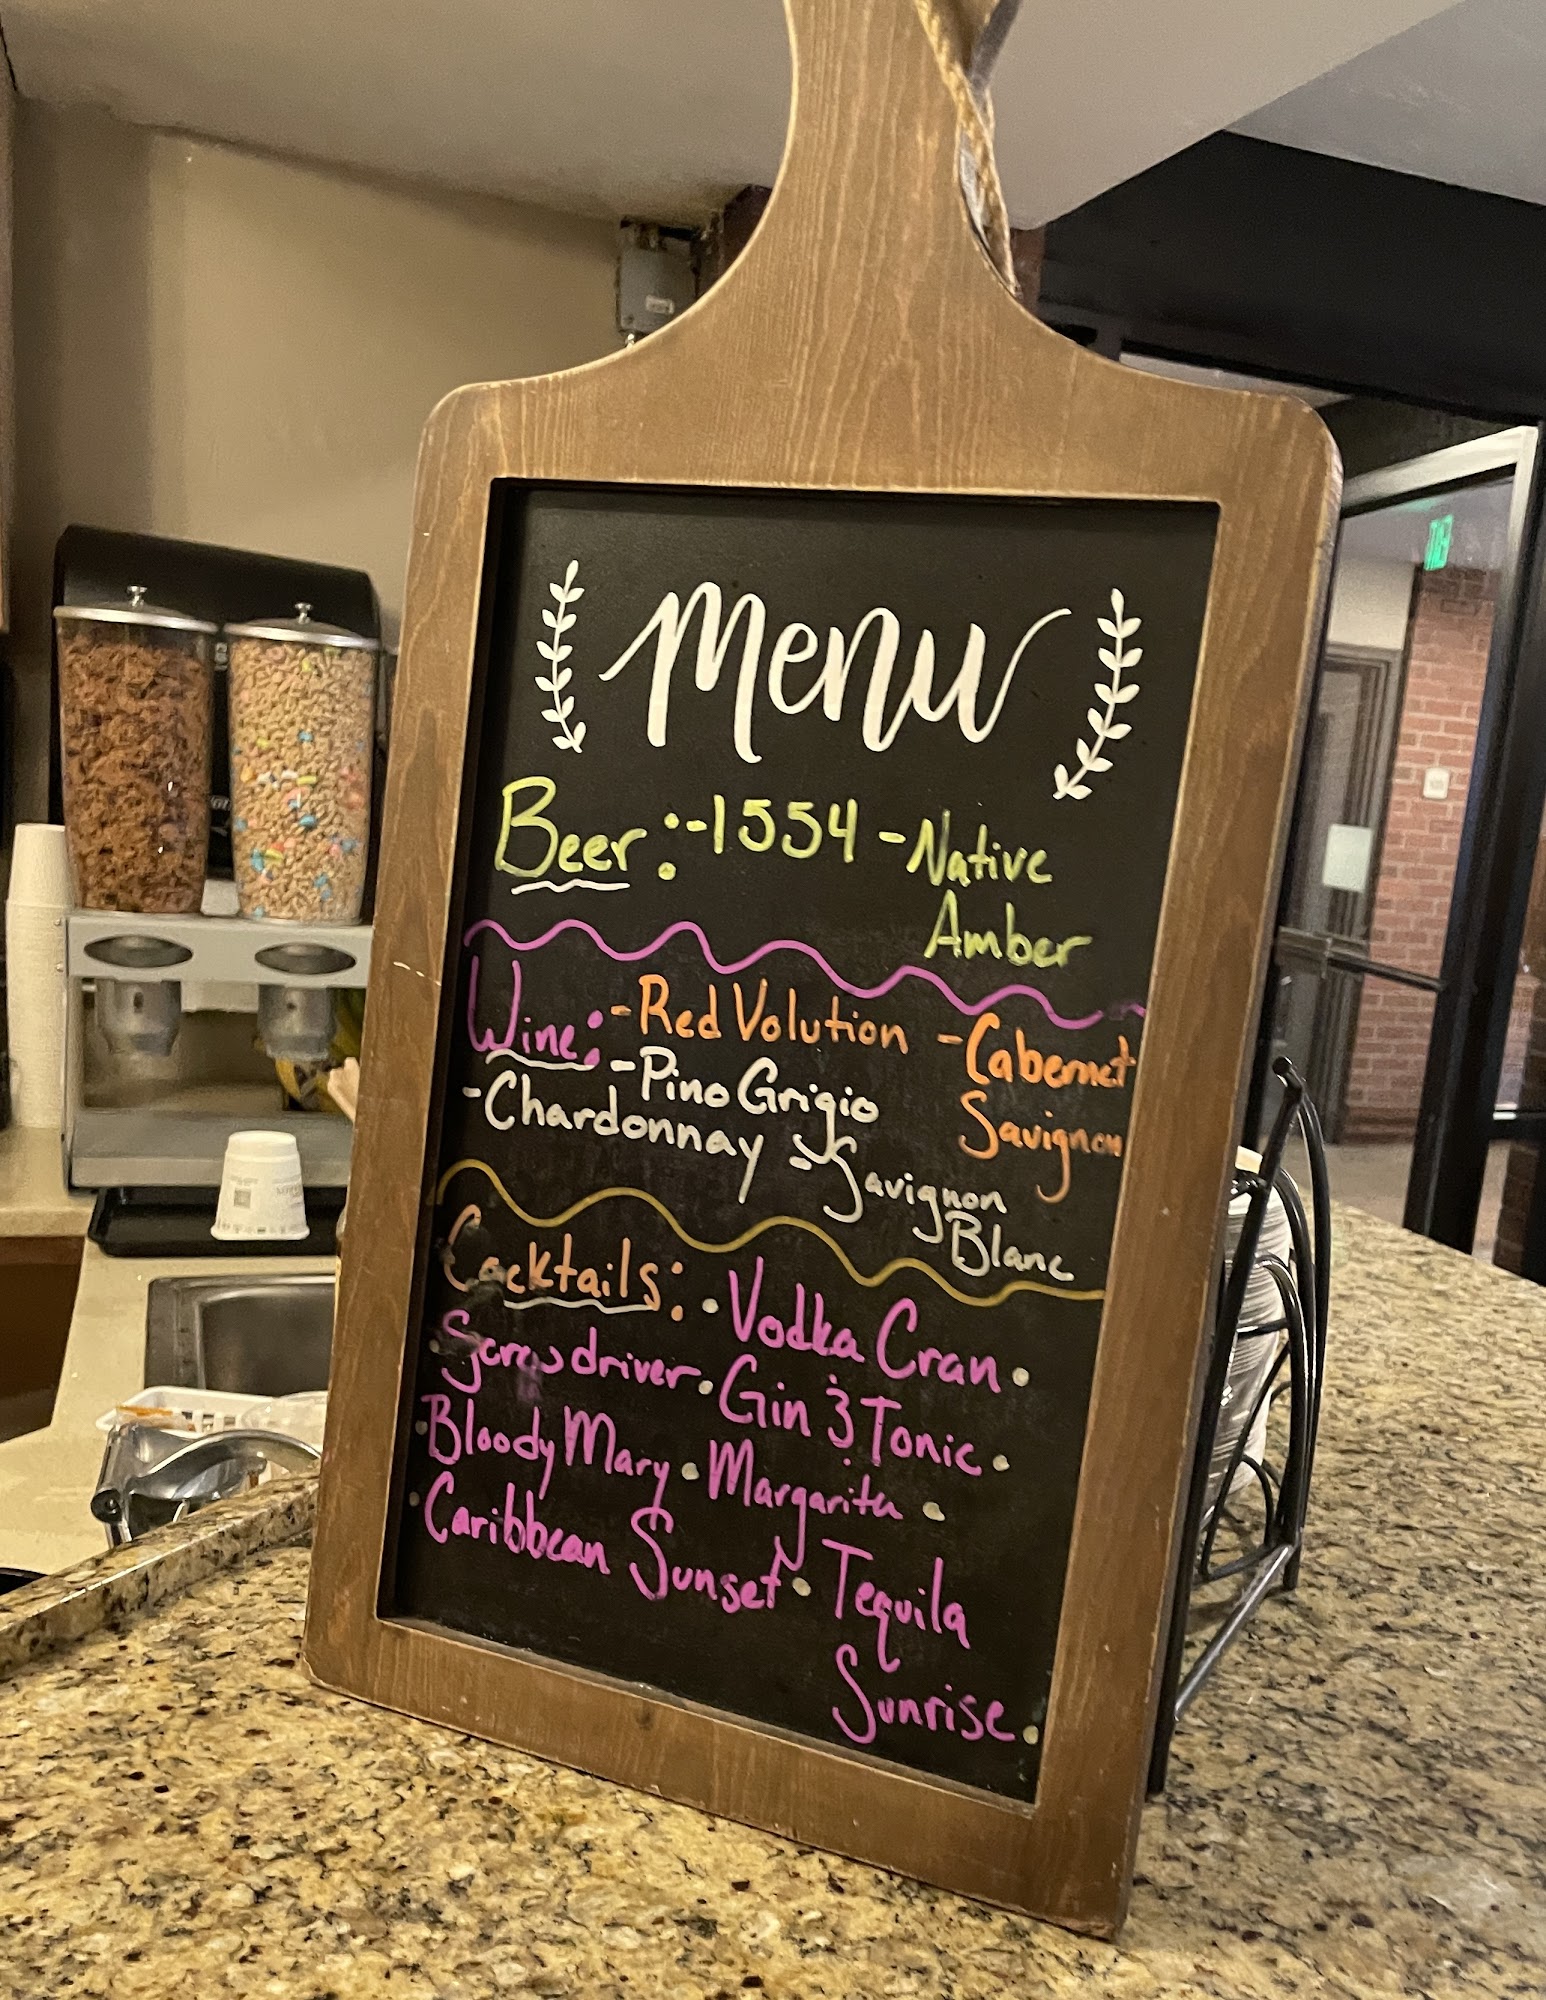 Menu
Beer: -1554 -Native
Amber
Wine: -Red Volution -Cabernet
Savignon
-Pino Grigio
-Chardonnay -Savignon
Blanc
Cocktails: • Vodka Cran •
Screwdriver • Gin & Tonic •
• Bloody Mary • Margarita •
• Caribbean Sunset • Tequila
Sunrise •